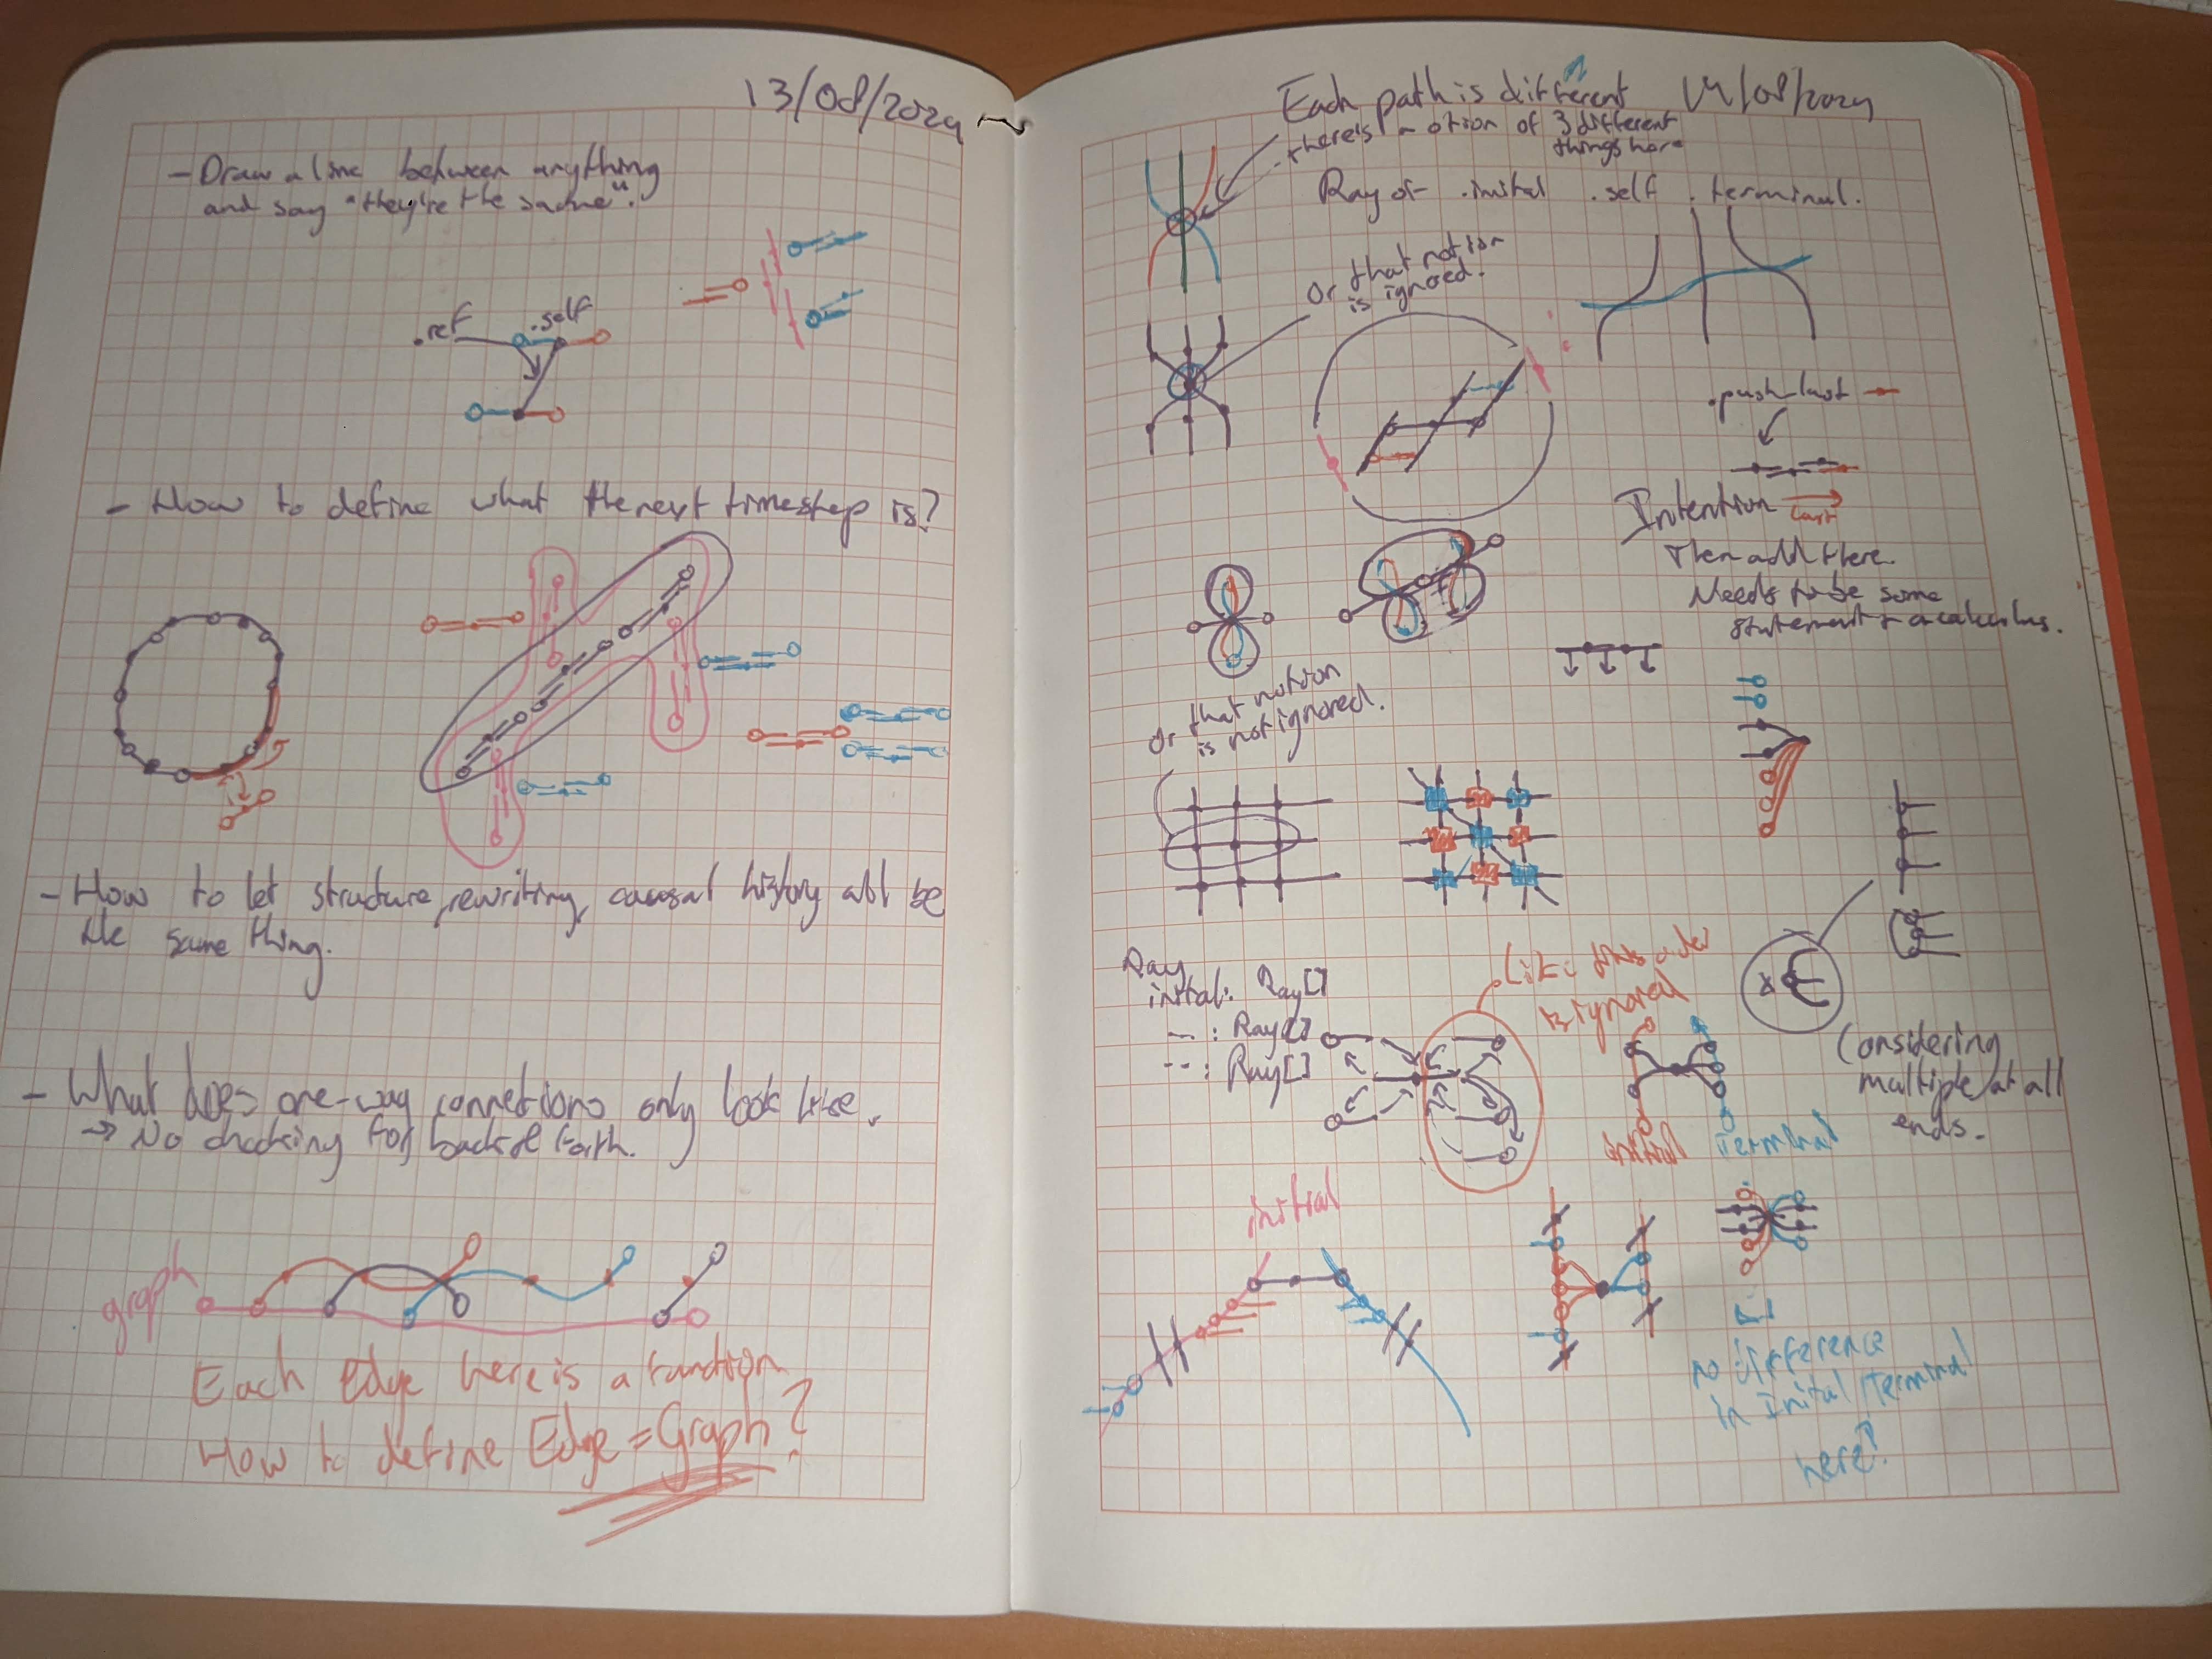 13/08/2024
- Draw a line between anything
and say "they're the same".
.ref
.self
- How to define what the next timestep is?
- How to let structure, rewriting, causal history all be
the same thing.
- What does one-way connections only look like.
→ No checking for back & forth.
graph
Each Edge here is a function
How to define Edge = Graph?
Each path is different
14/08/2024
there's a notion of 3 different
things here
Ray of .initial .self .terminal.
Or that notion
is ignored.
.push_last
Intention
Last
Then add there.
Needs to be some
statement a calculus.
Or that notion
is not ignored.
Ray
initial: Ray[]
— : Ray[]
-- : Ray[]
Like this order
is ignored
Considering
multiple at all
ends.
initial
Terminal
initial
[]
no difference
in Initial/Terminal
here?